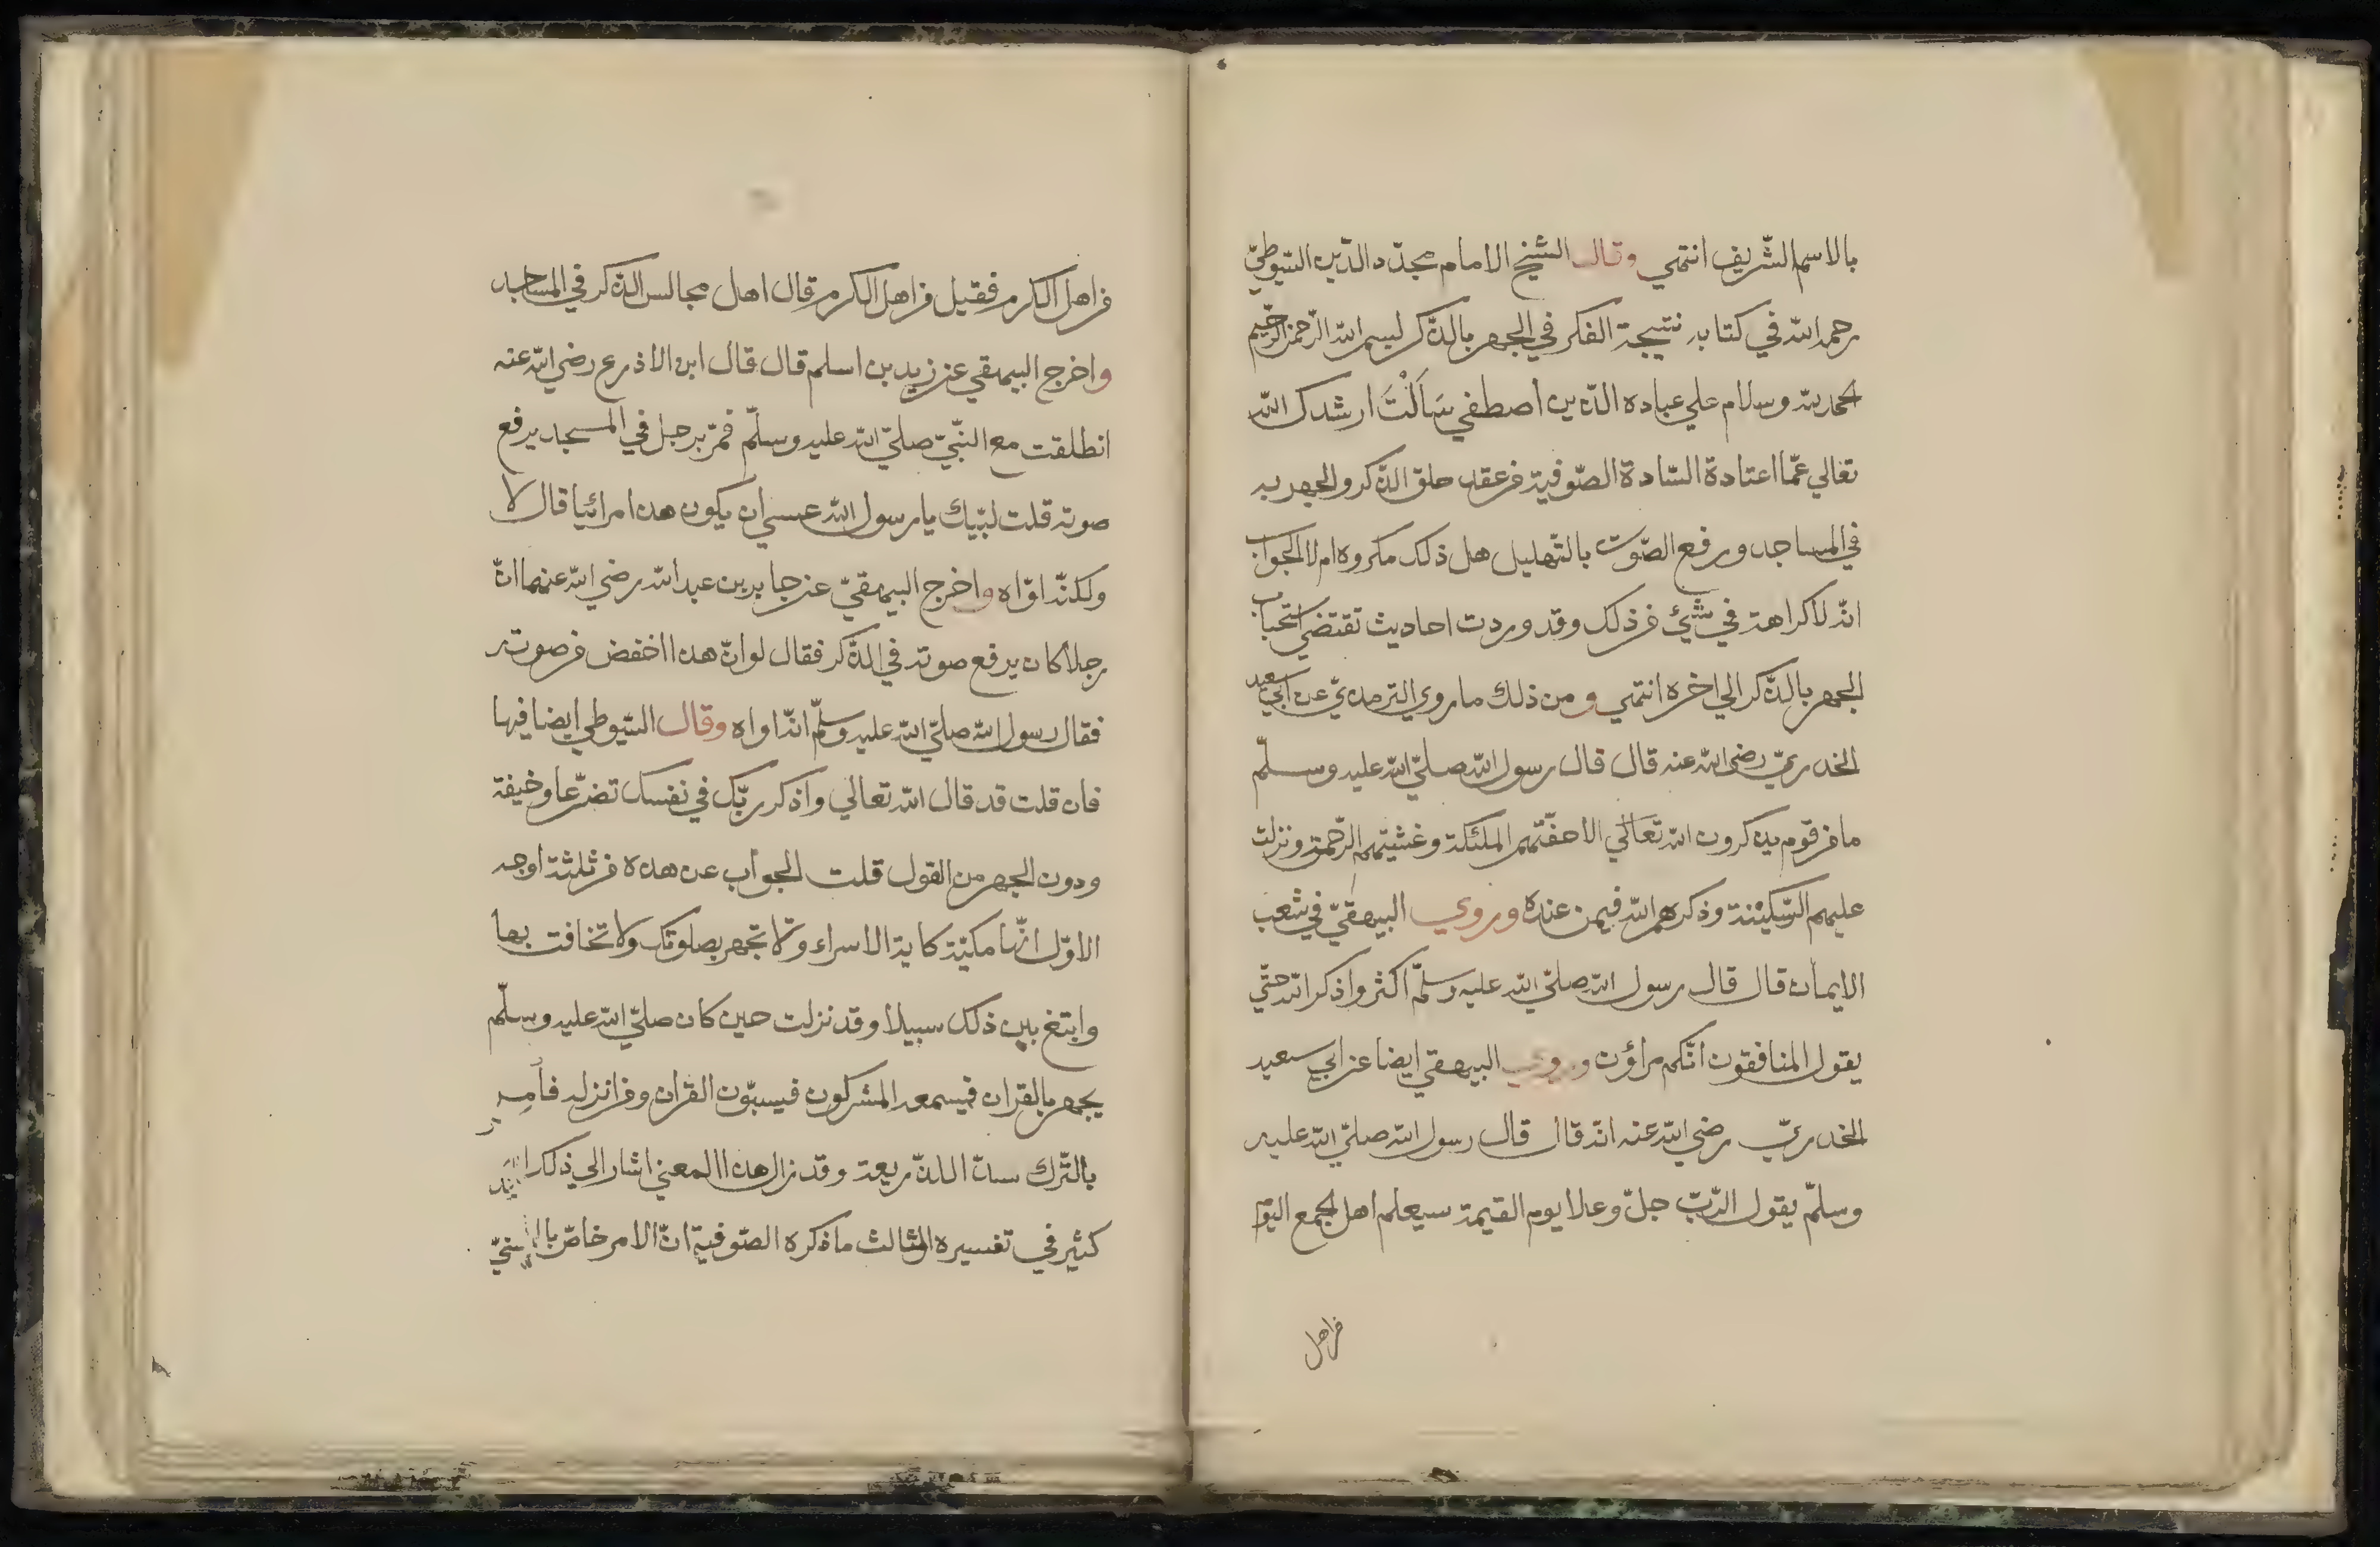 بالاسم الشّريف انتهي وقال الشّيخ الامام مجدّد الدّين السّيوطيّ
رحمه الله في كتابه نتيجة الفكر في الجهر بالذّكر لبسم الله الرّحمن الرّحيم
الحمد لله وسلام علي عباده الذّين اصطفي سَاَلْتَ ارشدك الله
تعالي عمّا اعتادة السّادة الصّوفية من عقد حلق الذّكر والجهر به
في المساجد ورفع الصّوت بالتّهليل هل ذلك مكروه ام لا الجواب
انّه لا كراهة في شئ من ذلك وقد وردت احاديث تقتضي استحباب
الجهر بالذّكر الي اخره انتهي ومن ذلك ما روي الترمذيّ عن ابي سعيد
الخدريّ رضي الله عنه قال قال رسول الله صلّي الله عليه وسلّم
ما من قوم يذكرون الله تعالي الا حفّتهم الملئكة وغشيتهم الرّحمة ونزلت
عليهم السّكينة وذكرهم الله فيمن عنده وروي البيهقيّ في شعب
الايمان قال قال رسول الله صلّي الله عليه وسلّم اكثروا ذكر الله حتّي
يقول المنافقون انّكم مراؤن وروي البيهقي ايضا عن ابي سعيد
الخدريّ رضي الله عنه انّه قال قال رسول الله صلّي الله عليه
وسلّم يقول الرّبّ جلّ وعلا يوم القيمة سيعلم اهل الجمع اليوم
من اهل
من اهل الكرم فقيل من اهل الكرم قال اهل مجالس الذّكر في المساجد
واخرج البيهقي عن زيد بن اسلم قال قال ابن الاذرع رضي الله عنه
انطلقت مع النّبيّ صلّي الله عليه وسلّم فمرّ برجل في المسجد يرفع
صوته قلت لبّيك يا رسول الله عسي ان يكون هذا مرائيا قال لا
ولكنّه اوّاه واخرج البيهقيّ عن جابر بن عبد الله رضي الله عنهما انّ
رجلا كان يرفع صوته في الذّكر فقال لو انّ هذا اخفض من صوته
فقال رسول الله صلّي الله عليه وسلّم انّه اواه وقال السّيوطي ايضا فيها
فان قلت قد قال الله تعالي واذكر ربّك في نفسك تضرّعا وخيفة
ودون الجهر من القول قلت الجواب عن هذه من ثلثة اوجه
الاوّل انّها مكيّة كاية الاسراء ولا تجهر بصلوتك ولا تخافت بها
وابتغ بين ذلك سبيلا وقد نزلت حين كان صلّي الله عليه وسلّم
يجهر بالقران فيسمعه المشركون فيسبّون القران ومن انزله فأمر
بالتّرك سدّا للذّريعة وقد زال هذا المعني اشار الي ذلك
كثير في تفسيره الثالث ما ذكره الصّوفية انّ الامر خاصّ